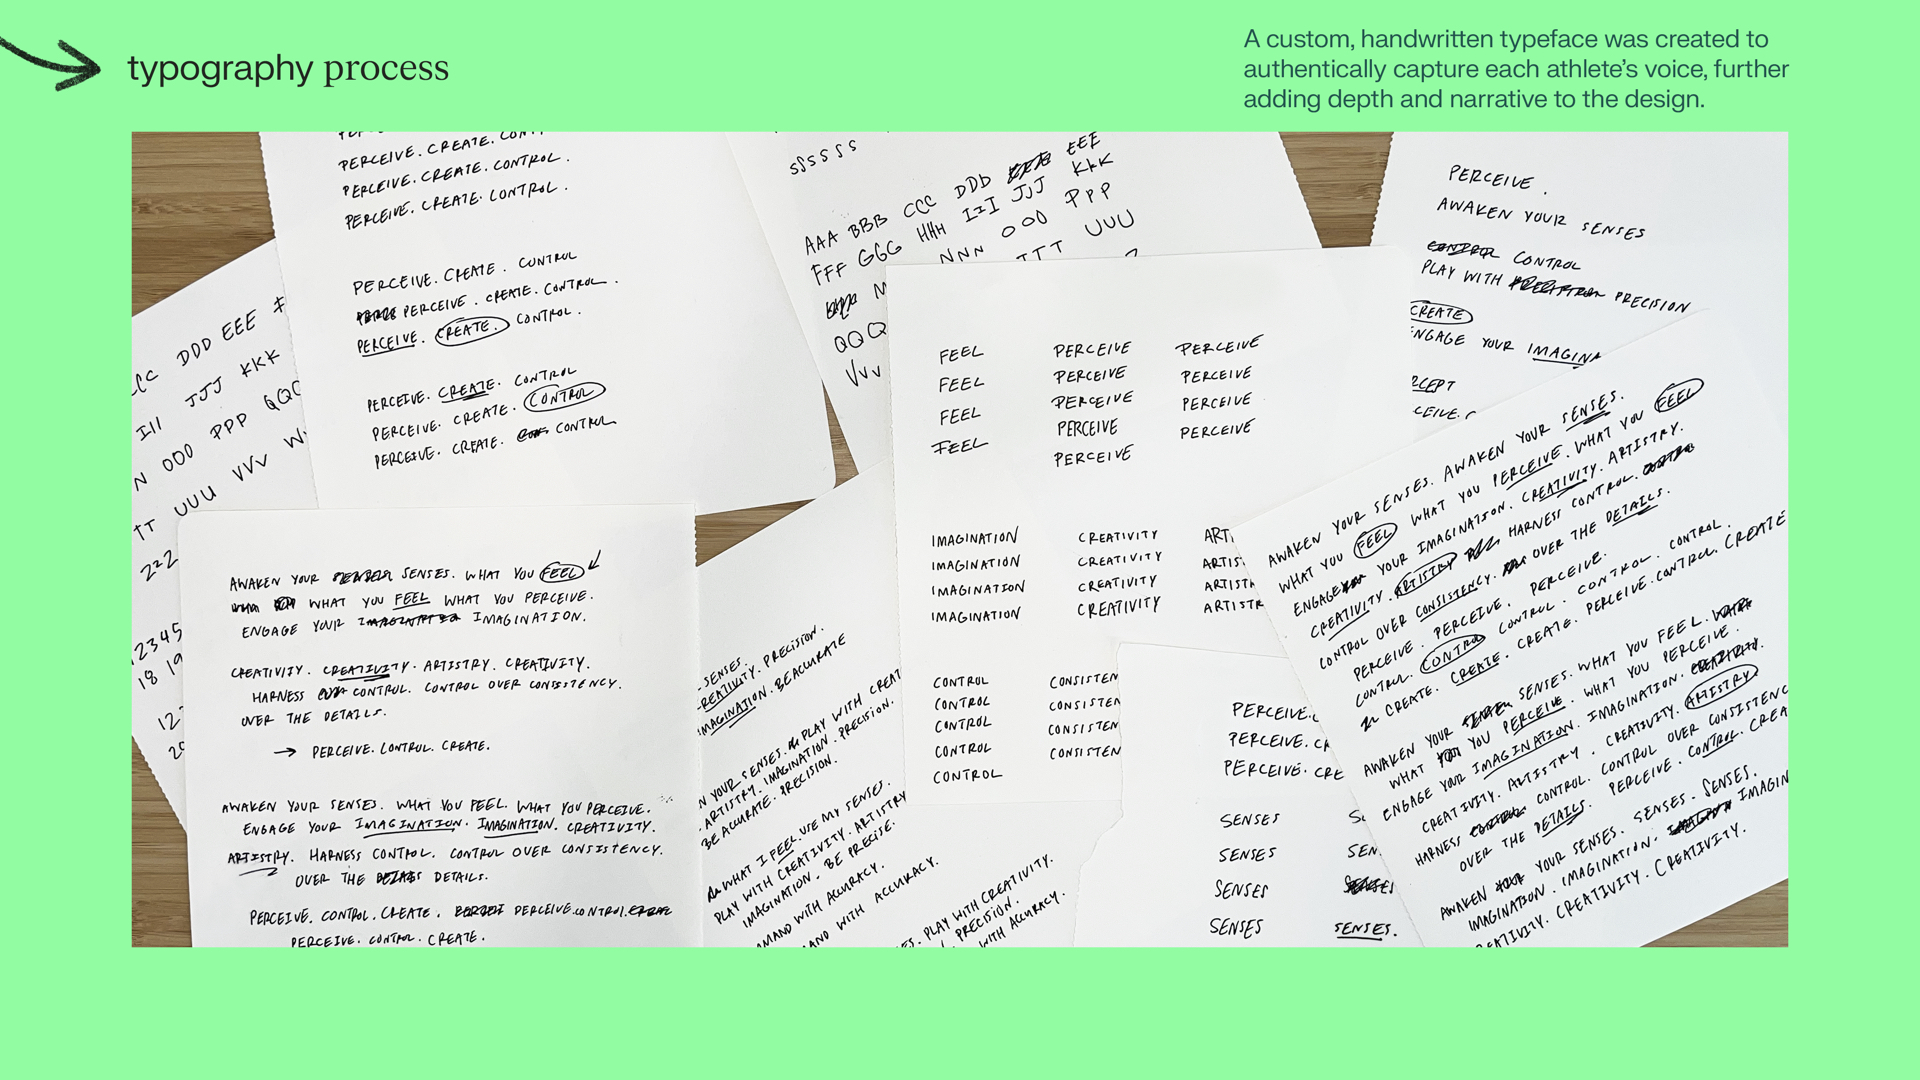 typography process
A custom, handwritten typeface was created to
authentically capture each athlete's voice, further
adding depth and narrative to the design.
PERCEIVE. CREATE.
PERCEIVE. CREATE. CONTROL.
PERCEIVE. CREATE. CONTROL.
PERCEIVE. CREATE. CONTROL
PERCEIVE. CREATE. CONTROL.
PERCEIVE. CREATE. CONTROL.
PERCEIVE. CREATE. CONTROL
PERCEIVE. CREATE. CONTROL
PERCEIVE. CREATE. CONTROL
DDD EEE
JJJ KKK
III
OOO PPP QQ
UUU VVV W
222
12345
18 19
12
20
SSSSSS
AAA BBB CCC DDD EEE
FFF GGG HHH III JJJ KKK
NNN OOO PPP
QQQ TTT UUU
VVV
PERCEIVE.
AWAKEN YOUR SENSES
CONTROL CONTROL
PLAY WITH PRECISION
CREATE
ENGAGE YOUR IMAGINA
FEEL PERCEIVE PERCEIVE
FEEL PERCEIVE PERCEIVE
FEEL PERCEIVE PERCEIVE
FEEL PERCEIVE PERCEIVE
PERCEIVE
IMAGINATION CREATIVITY ART
IMAGINATION CREATIVITY ARTIS
IMAGINATION CREATIVITY ARTIST
IMAGINATION CREATIVITY ARTISTR
CONTROL CONSISTEN
CONTROL CONSISTEN
CONTROL CONSISTEN
CONTROL CONSISTEN
CONTROL
AWAKEN YOUR SENSES. WHAT YOU FEEL
WHAT YOU FEEL WHAT YOU PERCEIVE.
ENGAGE YOUR IMAGINATION.
CREATIVITY. CREATIVITY. ARTISTRY. CREATIVITY.
HARNESS CONTROL. CONTROL OVER CONSISTENCY.
OVER THE DETAILS.
→ PERCEIVE. CONTROL. CREATE.
AWAKEN YOUR SENSES. WHAT YOU FEEL. WHAT YOU PERCEIVE.
ENGAGE YOUR IMAGINATION. IMAGINATION. CREATIVITY.
ARTISTRY. HARNESS CONTROL. CONTROL OVER CONSISTENCY.
OVER THE DETAILS.
PERCEIVE. CONTROL. CREATE. PERCEIVE. CONTROL.
PERCEIVE. CONTROL. CREATE.
SENSES.
CREATIVITY. PRECISION.
IMAGINATION. BE ACCURATE
N YOUR SENSES. PLAY WITH CREAT
ARTISTRY. IMAGINATION. PRECISION.
BE ACCURATE. PRECISION.
WHAT I FEEL. USE MY SENSES.
PLAY WITH CREATIVITY. ARTISTRY
IMAGINATION. BE PRECISE.
MMAND WITH ACCURACY.
AND WITH ACCURACY.
ES. PLAY WITH CREATIVITY.
PRECISION.
WITH ACCURACY.
PERCEIVE. C
PERCEIVE. CR
PERCEIVE. CRE
SENSES S
SENSES SEN
SENSES
SENSES SENSES.
AWAKEN YOUR SENSES. AWAKEN YOUR SENSES.
WHAT YOU FEEL WHAT YOU PERCEIVE. WHAT YOU FEEL
ENGAGE YOUR IMAGINATION. CREATIVITY. ARTISTRY.
CREATIVITY. ARTISTRY HARNESS CONTROL.
CONTROL OVER CONSISTENCY. OVER THE DETAILS.
PERCEIVE. PERCEIVE. PERCEIVE.
CONTROL. CONTROL CONTROL. CONTROL. CONTROL.
CREATE. CREATE. CREATE. PERCEIVE. CONTROL. CREATE
AWAKEN YOUR SENSES. WHAT YOU FEEL.
WHAT YOU PERCEIVE. WHAT YOU PERCEIVE.
ENGAGE YOUR IMAGINATION. IMAGINATION.
CREATIVITY. ARTISTRY. CREATIVITY. ARTISTRY
HARNESS CONTROL. CONTROL OVER CONSISTENC
OVER THE DETAILS. PERCEIVE. CONTROL. CREA
AWAKEN YOUR SENSES. SENSES. SENSES.
IMAGINATION. IMAGINATION. IMAGIN
CREATIVITY. CREATIVITY. CREATIVITY.